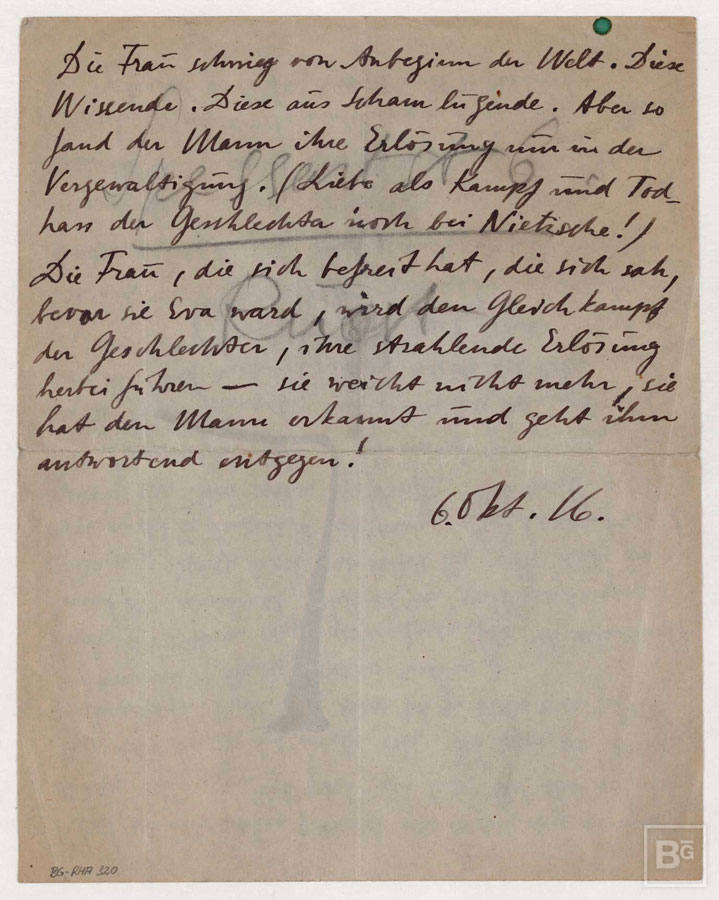 Die Frau schwieg von Anbeginn der Welt. Diese
Wissende. Diese aus Scham lügende. Aber so
fand der Mann ihre Erlösung nur in der
Vergewaltigung. (Liebe als Kampf und Tod-
hass der Geschlechter noch bei Nietzsche!)
Die Frau, die sich befreit hat, die sich sah,
bevor sie Eva ward, wird den Gleichkampf
der Geschlechter, ihre strahlende Erlösung
herbeiführen — sie weicht nicht mehr, sie
hat den Mann erkannt und geht ihm
antwortend entgegen!
6. Okt. 16.
BG-RHA 320
BG